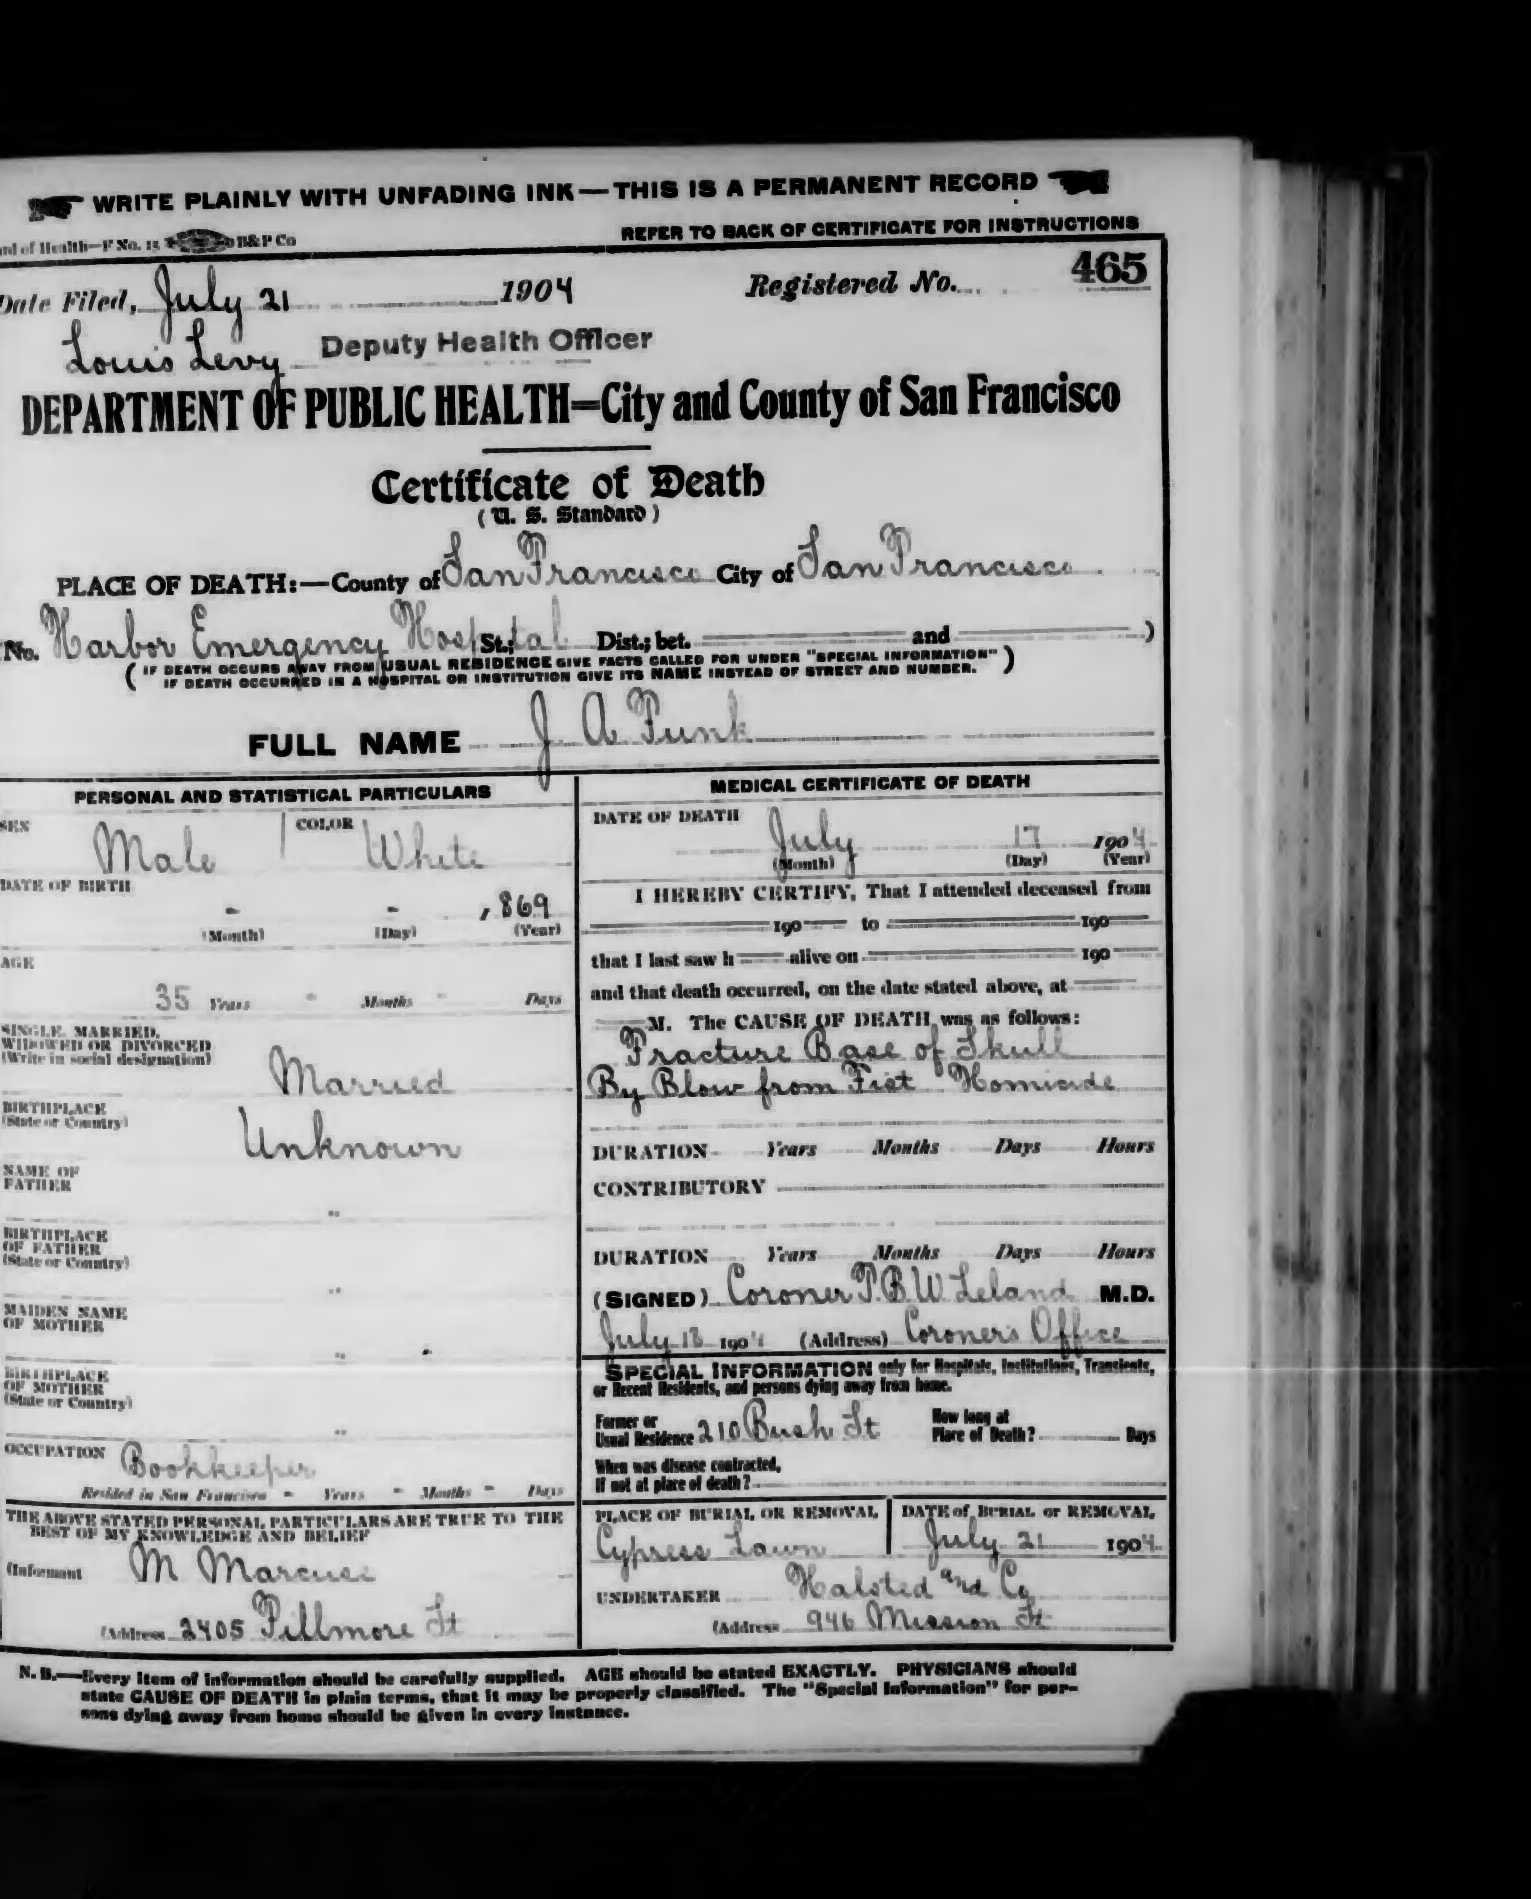 WRITE PLAINLY WITH UNFADING INK—THIS IS A PERMANENT RECORD
rd of Health—F No. 15 B&P Co
REFER TO BACK OF CERTIFICATE FOR INSTRUCTIONS
Date Filed, July 21 1904 Registered No. 465
Louis Levy Deputy Health Officer
DEPARTMENT OF PUBLIC HEALTH=City and County of San Francisco
Certificate of Death
(U. S. Standard)
PLACE OF DEATH:—County of San Francisco City of San Francisco
No. Harbor Emergency Hospital St.; Dist.; bet. and )
( IF DEATH OCCURS AWAY FROM USUAL RESIDENCE GIVE FACTS CALLED FOR UNDER "SPECIAL INFORMATION" )
IF DEATH OCCURRED IN A HOSPITAL OR INSTITUTION GIVE ITS NAME INSTEAD OF STREET AND NUMBER.
FULL NAME J A Funk
PERSONAL AND STATISTICAL PARTICULARS
SEX Male COLOR White
DATE OF BIRTH
- - , 869
(Month) (Day) (Year)
AGE
35 Years - Months - Days
SINGLE, MARRIED,
WIDOWED OR DIVORCED
(Write in social designation)
Married
BIRTHPLACE
(State or Country)
Unknown
NAME OF
FATHER
"
BIRTHPLACE
OF FATHER
(State or Country)
"
MAIDEN NAME
OF MOTHER
"
BIRTHPLACE
OF MOTHER
(State or Country)
"
OCCUPATION Bookkeeper
Resided in San Francisco - Years - Months - Days
THE ABOVE STATED PERSONAL PARTICULARS ARE TRUE TO THE
BEST OF MY KNOWLEDGE AND BELIEF
(Informant M Marcuse
(Address 2405 Fillmore St
MEDICAL CERTIFICATE OF DEATH
DATE OF DEATH
July 17 1904
(Month) (Day) (Year)
I HEREBY CERTIFY, That I attended deceased from
190 to 190
that I last saw h alive on 190
and that death occurred, on the date stated above, at
M. The CAUSE OF DEATH was as follows:
Fracture Base of Skull
By Blow from Fist Homicide
DURATION Years Months Days Hours
CONTRIBUTORY
DURATION Years Months Days Hours
(SIGNED) Coroner T. B W Leland M.D.
July 18 1904 (Address) Coroner's Office
SPECIAL INFORMATION only for Hospitals, Institutions, Transients,
or Recent Residents, and persons dying away from home.
Former or
Usual Residence 210 Bush St
How long at
Place of Death? Days
When was disease contracted,
If not at place of death?
PLACE OF BURIAL OR REMOVAL
Cypress Lawn
DATE of BURIAL or REMOVAL
July 21 1904
UNDERTAKER Halsted and Co
(Address 946 Mission St
N. B.—Every item of information should be carefully supplied. AGE should be stated EXACTLY. PHYSICIANS should
state CAUSE OF DEATH in plain terms, that it may be properly classified. The "Special Information" for per-
sons dying away from home should be given in every instance.